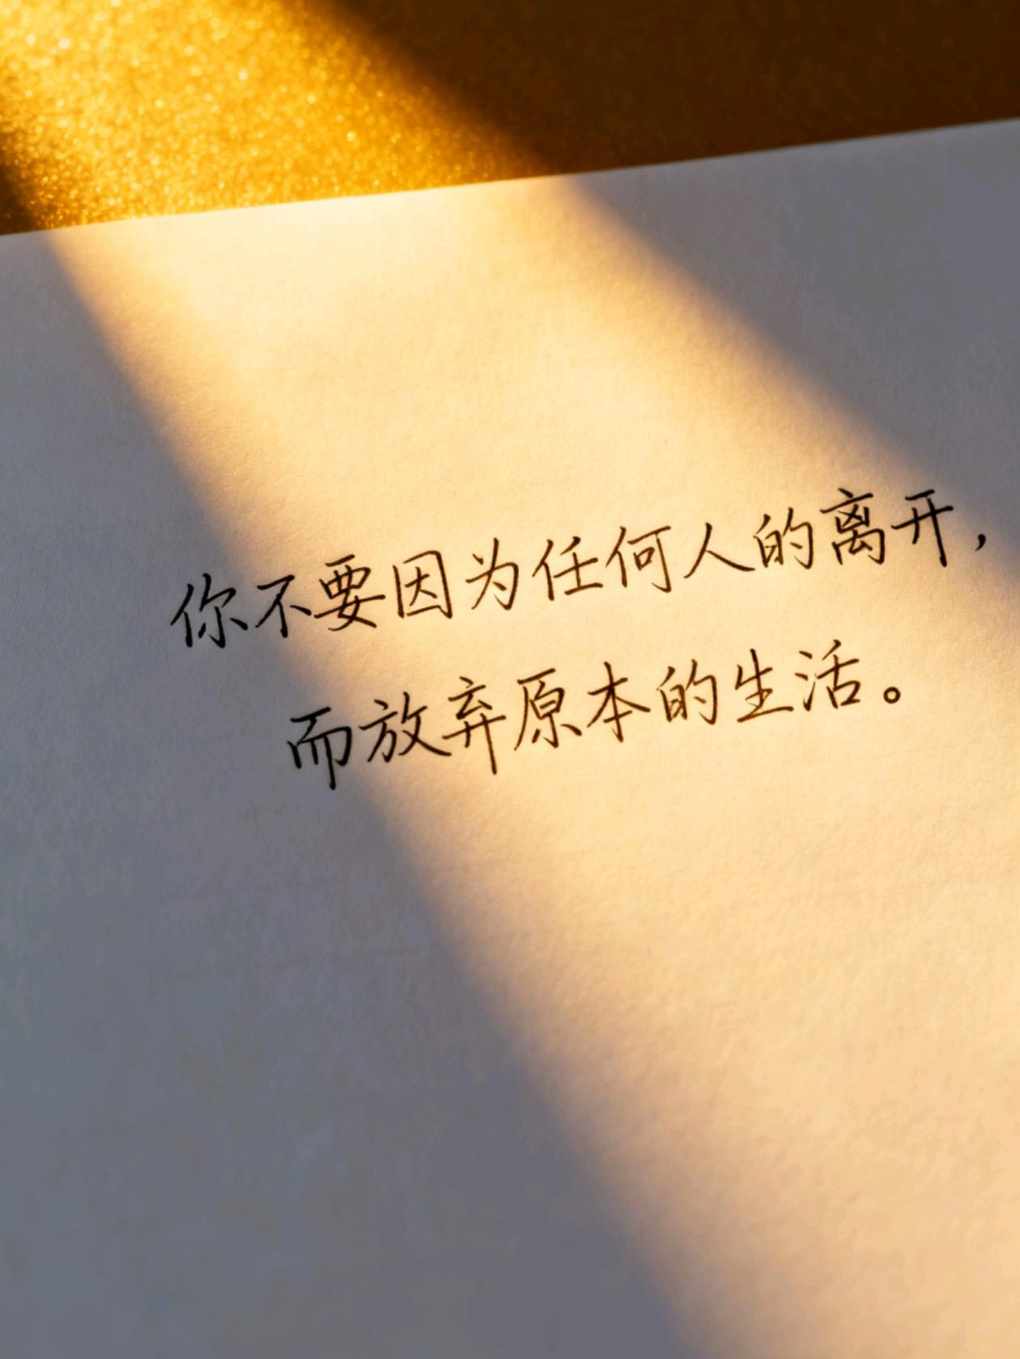 你不要因为任何人的离开，
而放弃原本的生活。